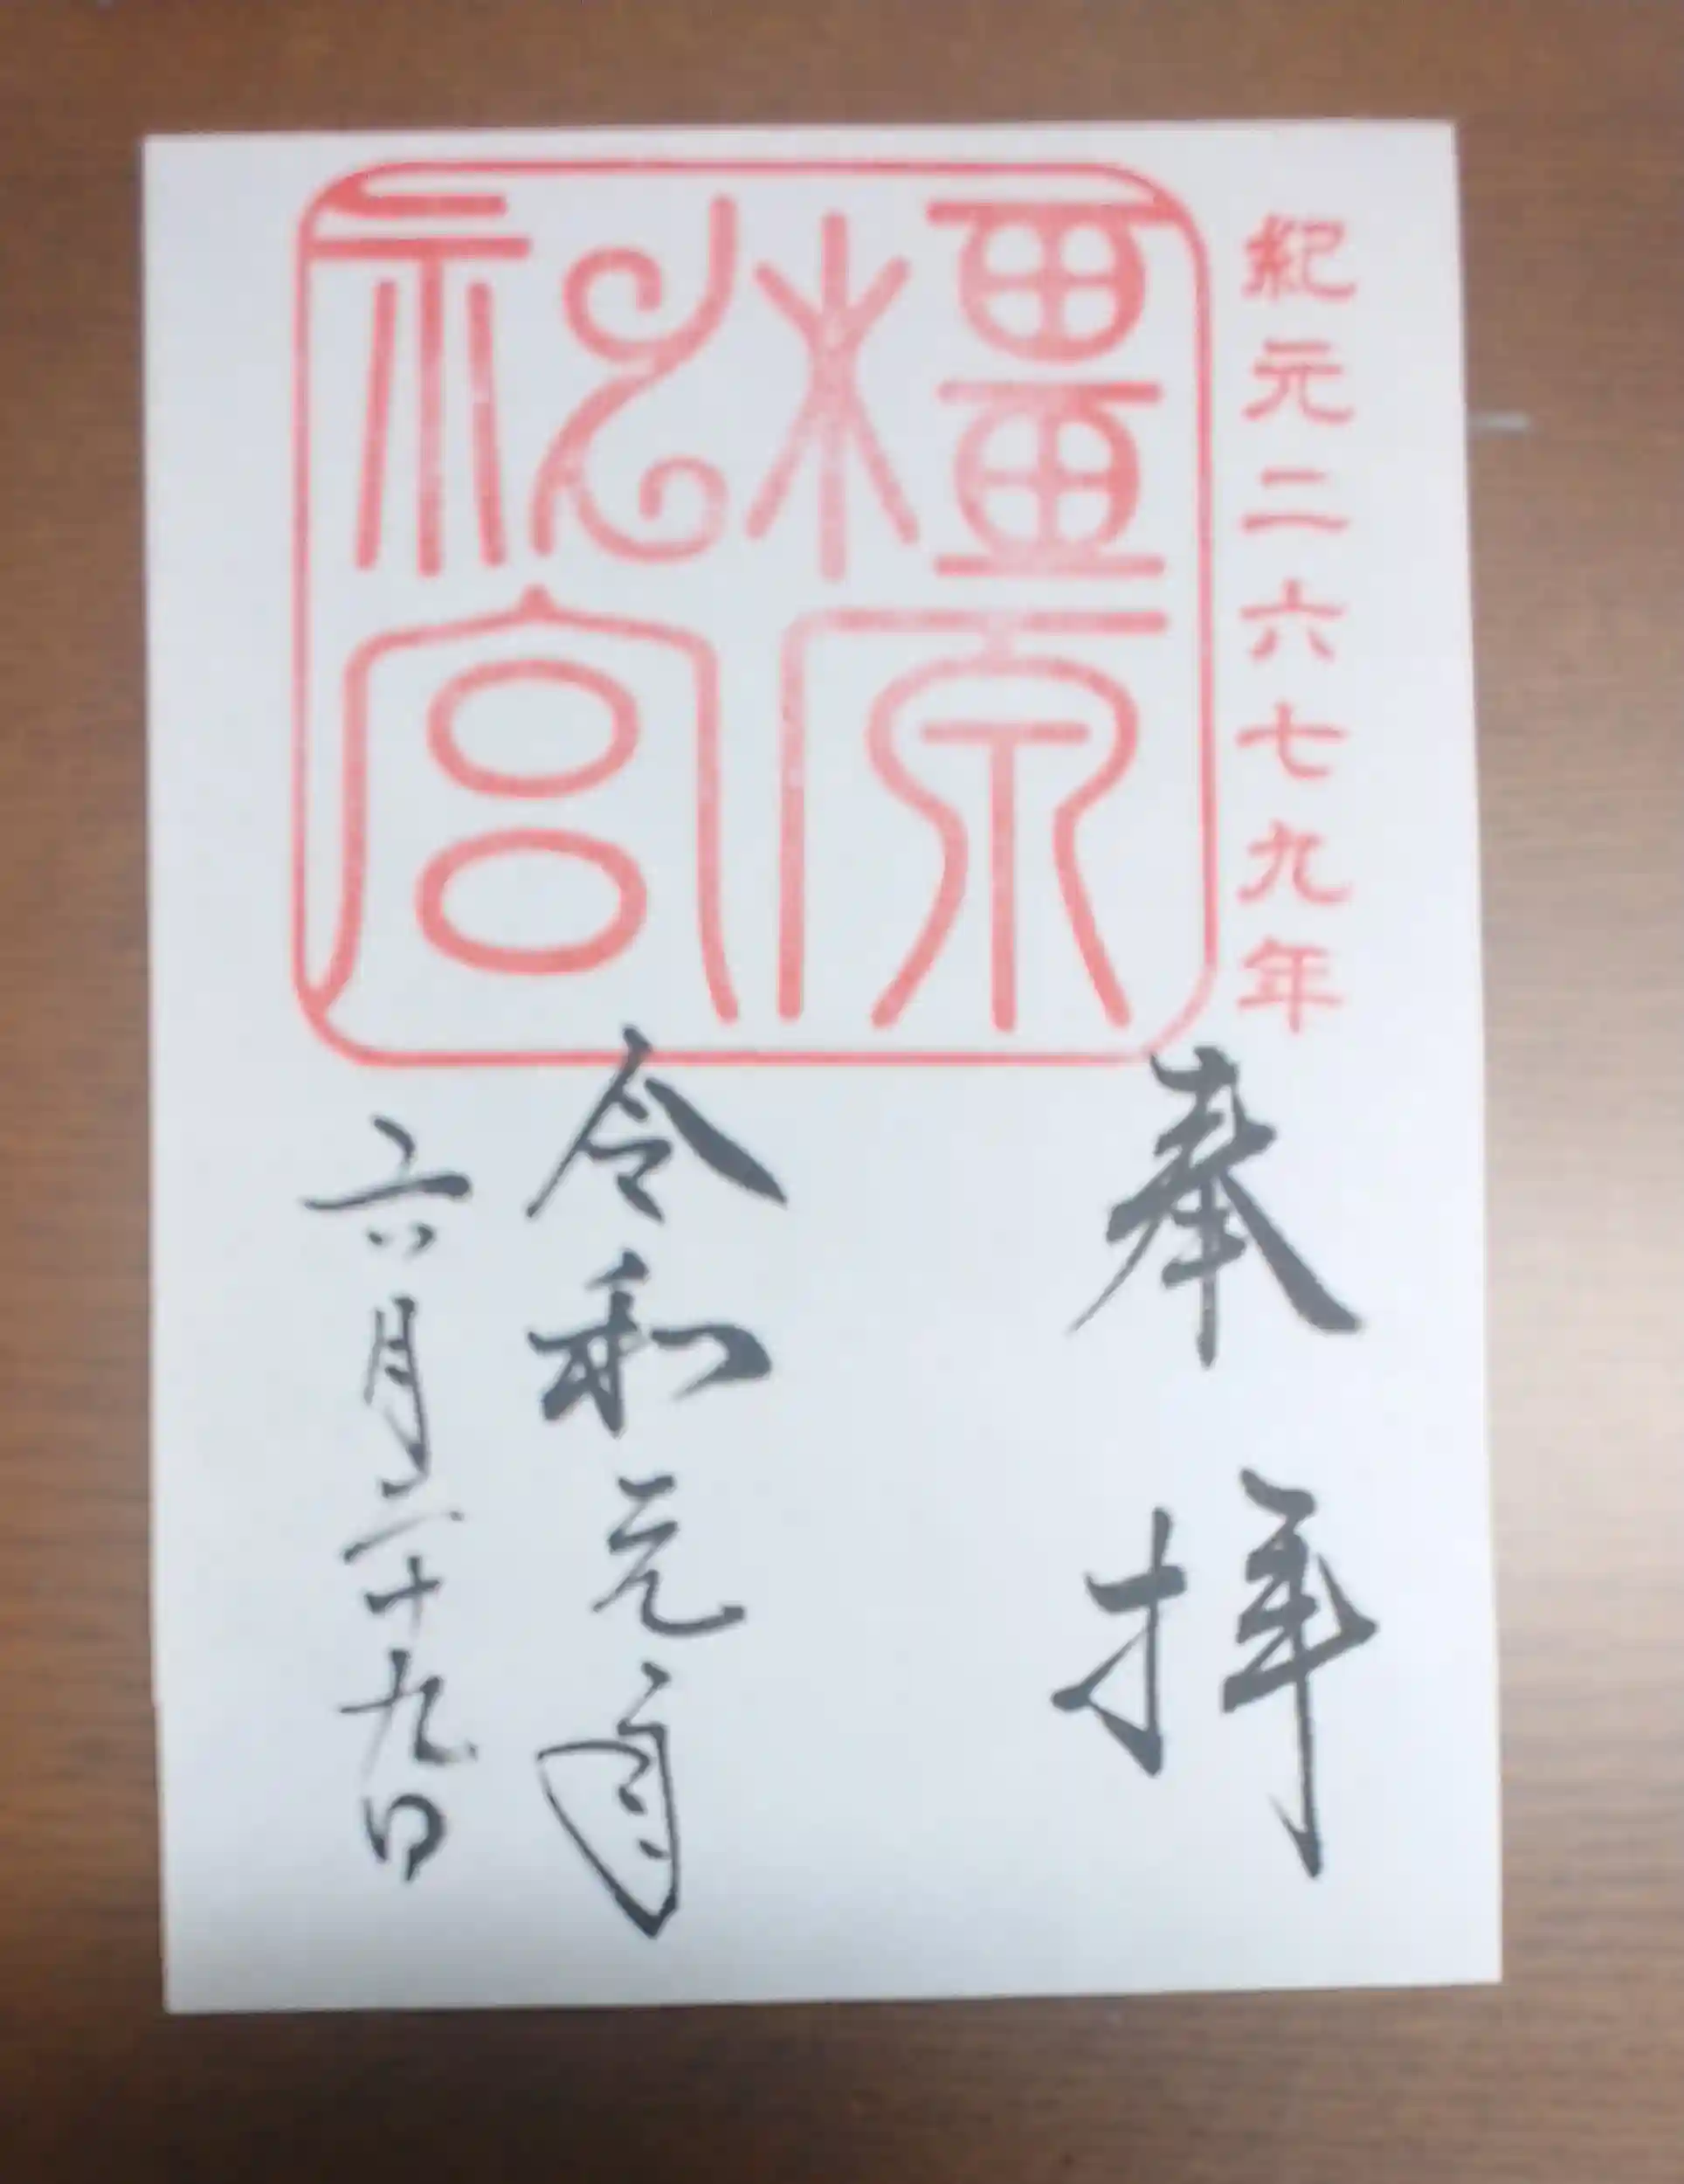 紀元二六七九年
橿原神宮
奉拝
令和元年
六月二十九日